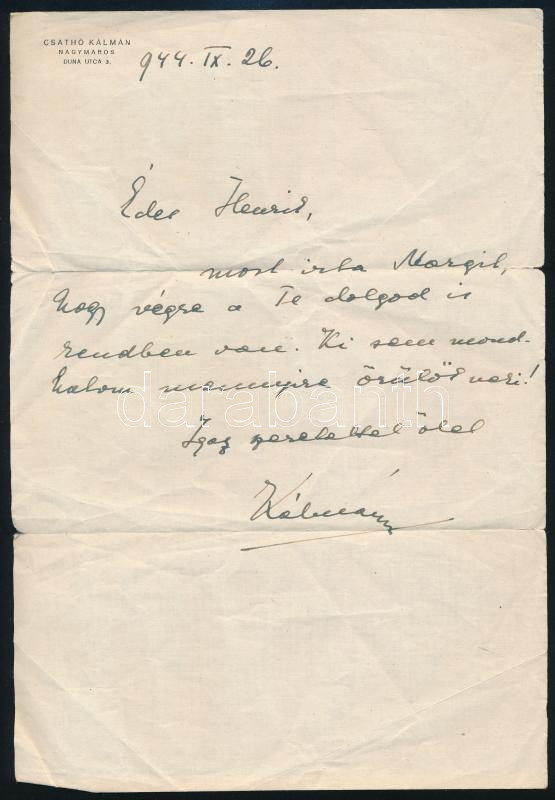 CSATHÓ KÁLMÁN
NAGYMAROS
DUNA UTCA 3.
944. IX. 26.
Édes Henrik,
most írta Margit,
hogy végre a Te dolgod is
rendben van. Ki sem mond-
hatom mennyire örülök neki!
Igaz szeretettel ölel
Kálmán
darabanth